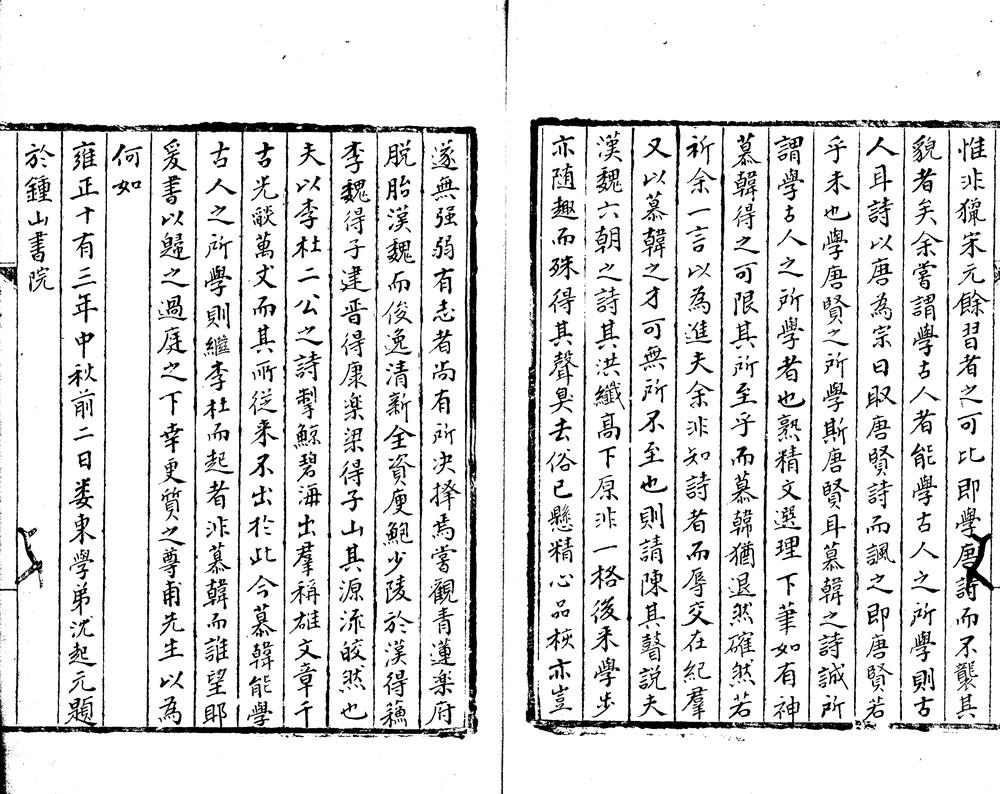 惟非獵宋元餘習者之可比即學唐詩而不襲其
貌者矣余嘗謂學古人者能學古人之所學則古
人耳詩以唐為宗日取唐賢詩而諷之即唐賢若
乎未也學唐賢之所學斯唐賢耳慕韓之詩誠所
謂學古人之所學者也熟精文選理下筆如有神
慕韓得之可限其所至乎而慕韓猶退然確然若
祈余一言以為進夫余非知詩者而辱交在紀羣
又以慕韓之才可無所不至也則請陳其瞽說夫
漢魏六朝之詩其洪纖高下原非一格後来學步
亦随趣而殊得其聲臭去俗已懸精心品核亦豈
遂無强弱有志者尚有所決擇焉嘗觀青蓮楽府
脱胎漢魏而俊逸清新全資庾鮑少陵於漢得蘓
李魏得子建晋得康楽梁得子山其源流皎然也
夫以李杜二公之詩掣鯨碧海出羣稱雄文章千
古光燄萬丈而其所従来不出於此今慕韓能學
古人之所學則繼李杜而起者非慕韓而誰望耶
爰書以歸之過庭之下幸更質之尊甫先生以為
何如
雍正十有三年中秋前二日婁東學弟沈起元題
於鍾山書院